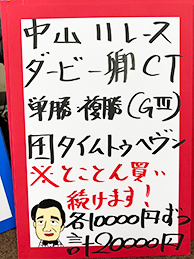 中山11レース
ダービー卿CT
単勝・複勝(GⅢ)
団タイムトゥヘヴン
※とことん買い
続けます!
各10000円ずつ
計20000円